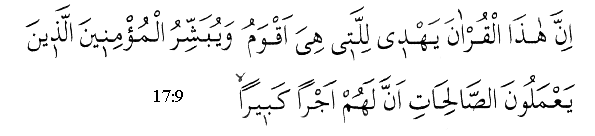 اِنَّ هٰذَا الْقُرْاٰنَ يَهْدِى لِلَّتِى هِىَ اَقْوَمُ وَيُبَشِّرُ الْمُؤْمِنِينَ الَّذِينَ
يَعْمَلُونَ الصَّالِحَاتِ اَنَّ لَهُمْ اَجْرًا كَبِيرًا 17:9